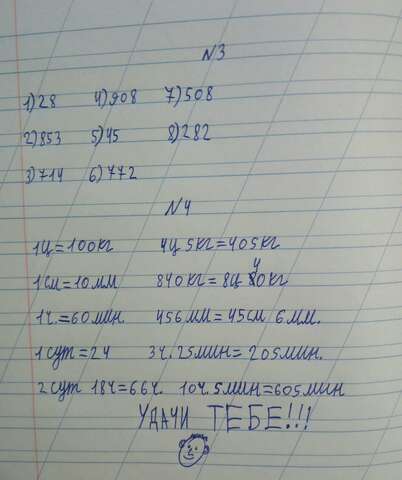 N3
1)28 4)908 7)508
2)853 5)45 8)282
3)714 6)772
N4
1ц=100кг 4ц 5кг=405кг
1см=10мм 840кг=8ц 40кг
1ч.=60мин. 456мм=45см 6мм.
1сут=24 3ч.25мин=205мин.
2сут 18ч=66ч. 10ч.5мин=605мин
УДАЧИ ТЕБЕ!!!